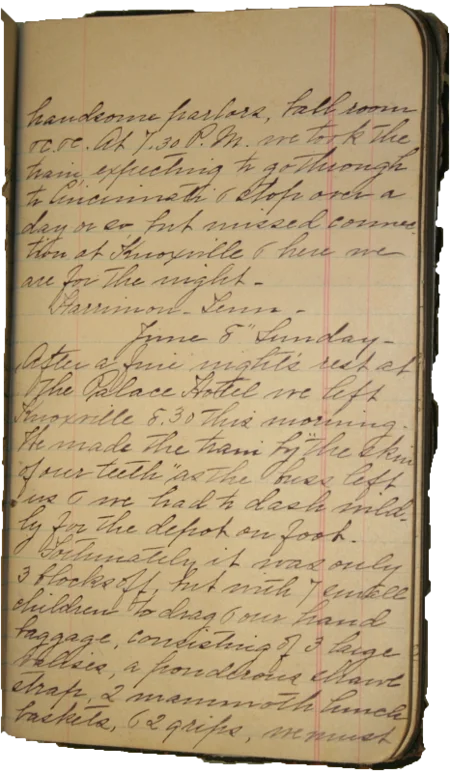 handsome parlors, ball room
&c. &c. At 7.30 P.M. we took the
train expecting to go through
to Cincinnati & stop over a
day or so, but missed connec-
tion at Knoxville & here we
are for the night -
Harriman - Tenn -
June 8" Sunday -
After a fine night's rest at
The Palace Hotel we left
Knoxville 8.30 this morning.
We made the train by "the skin
of our teeth" as the buss left
us & we had to dash wild-
ly for the depot on foot.
Fortunately it was only
3 blocks off, but with 7 small
children to drag & our hand
baggage, consisting of 3 large
valises, a ponderous shawl
strap, 2 mammoth lunch
baskets, & 2 grips, we must